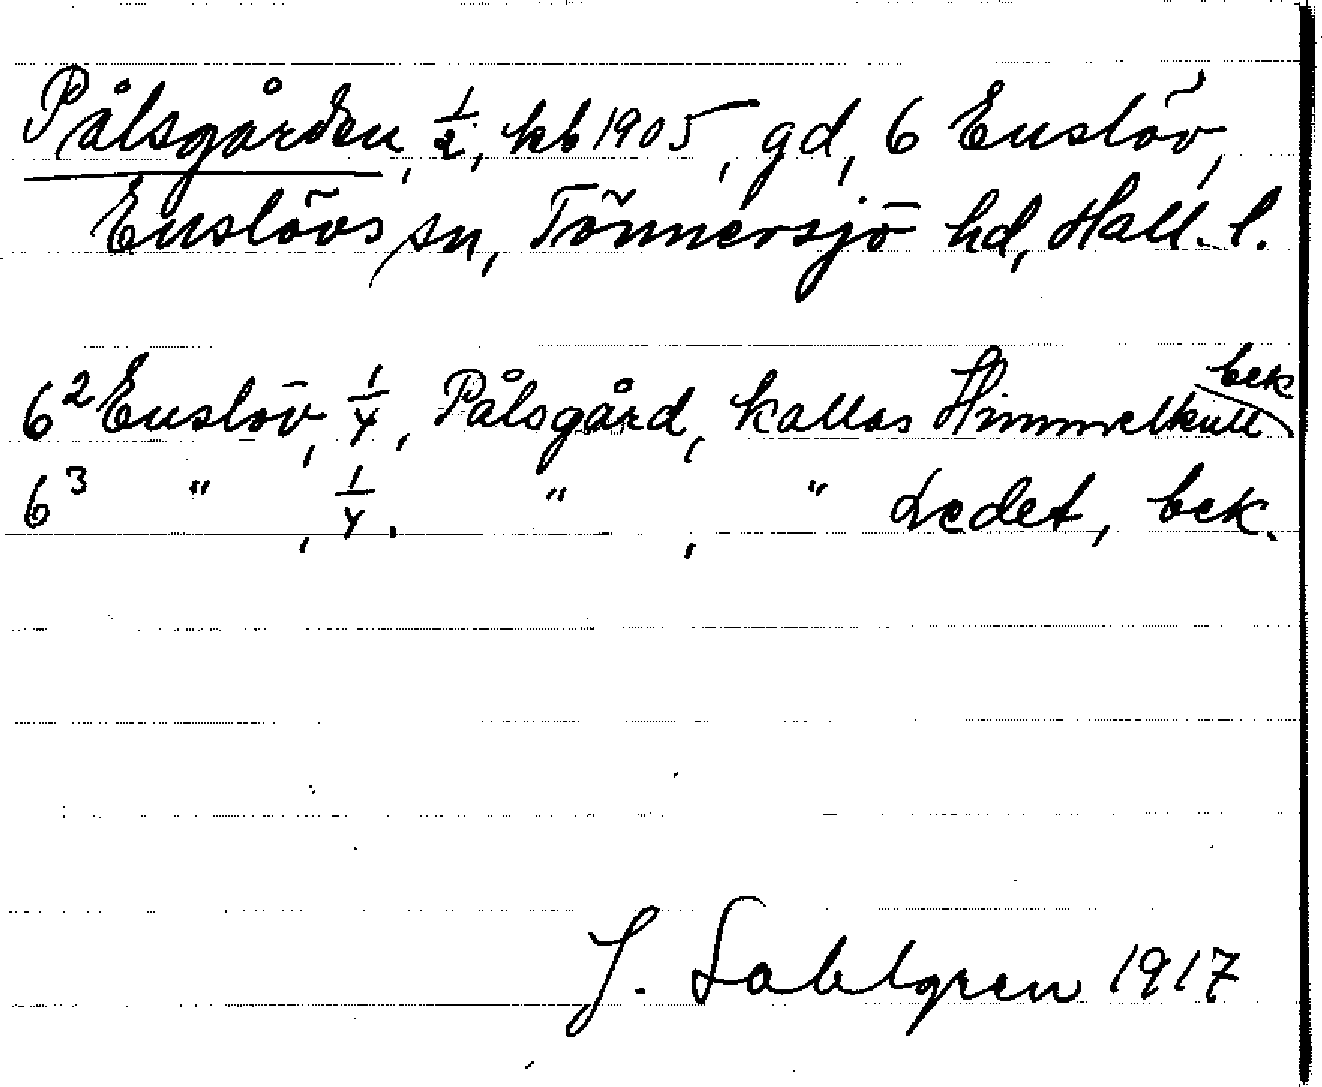 Pålsgården, 1/2, kb 1905, gd, 6 Enslöv,
Enslövs sn, Tönnersjö hd, Hall. l.
6² Enslöv, 1/4, Pålsgård, kallas Himmelkull bek
6³ " , 1/4, " , " Ledet, bek.
J. Sahlgren 1917